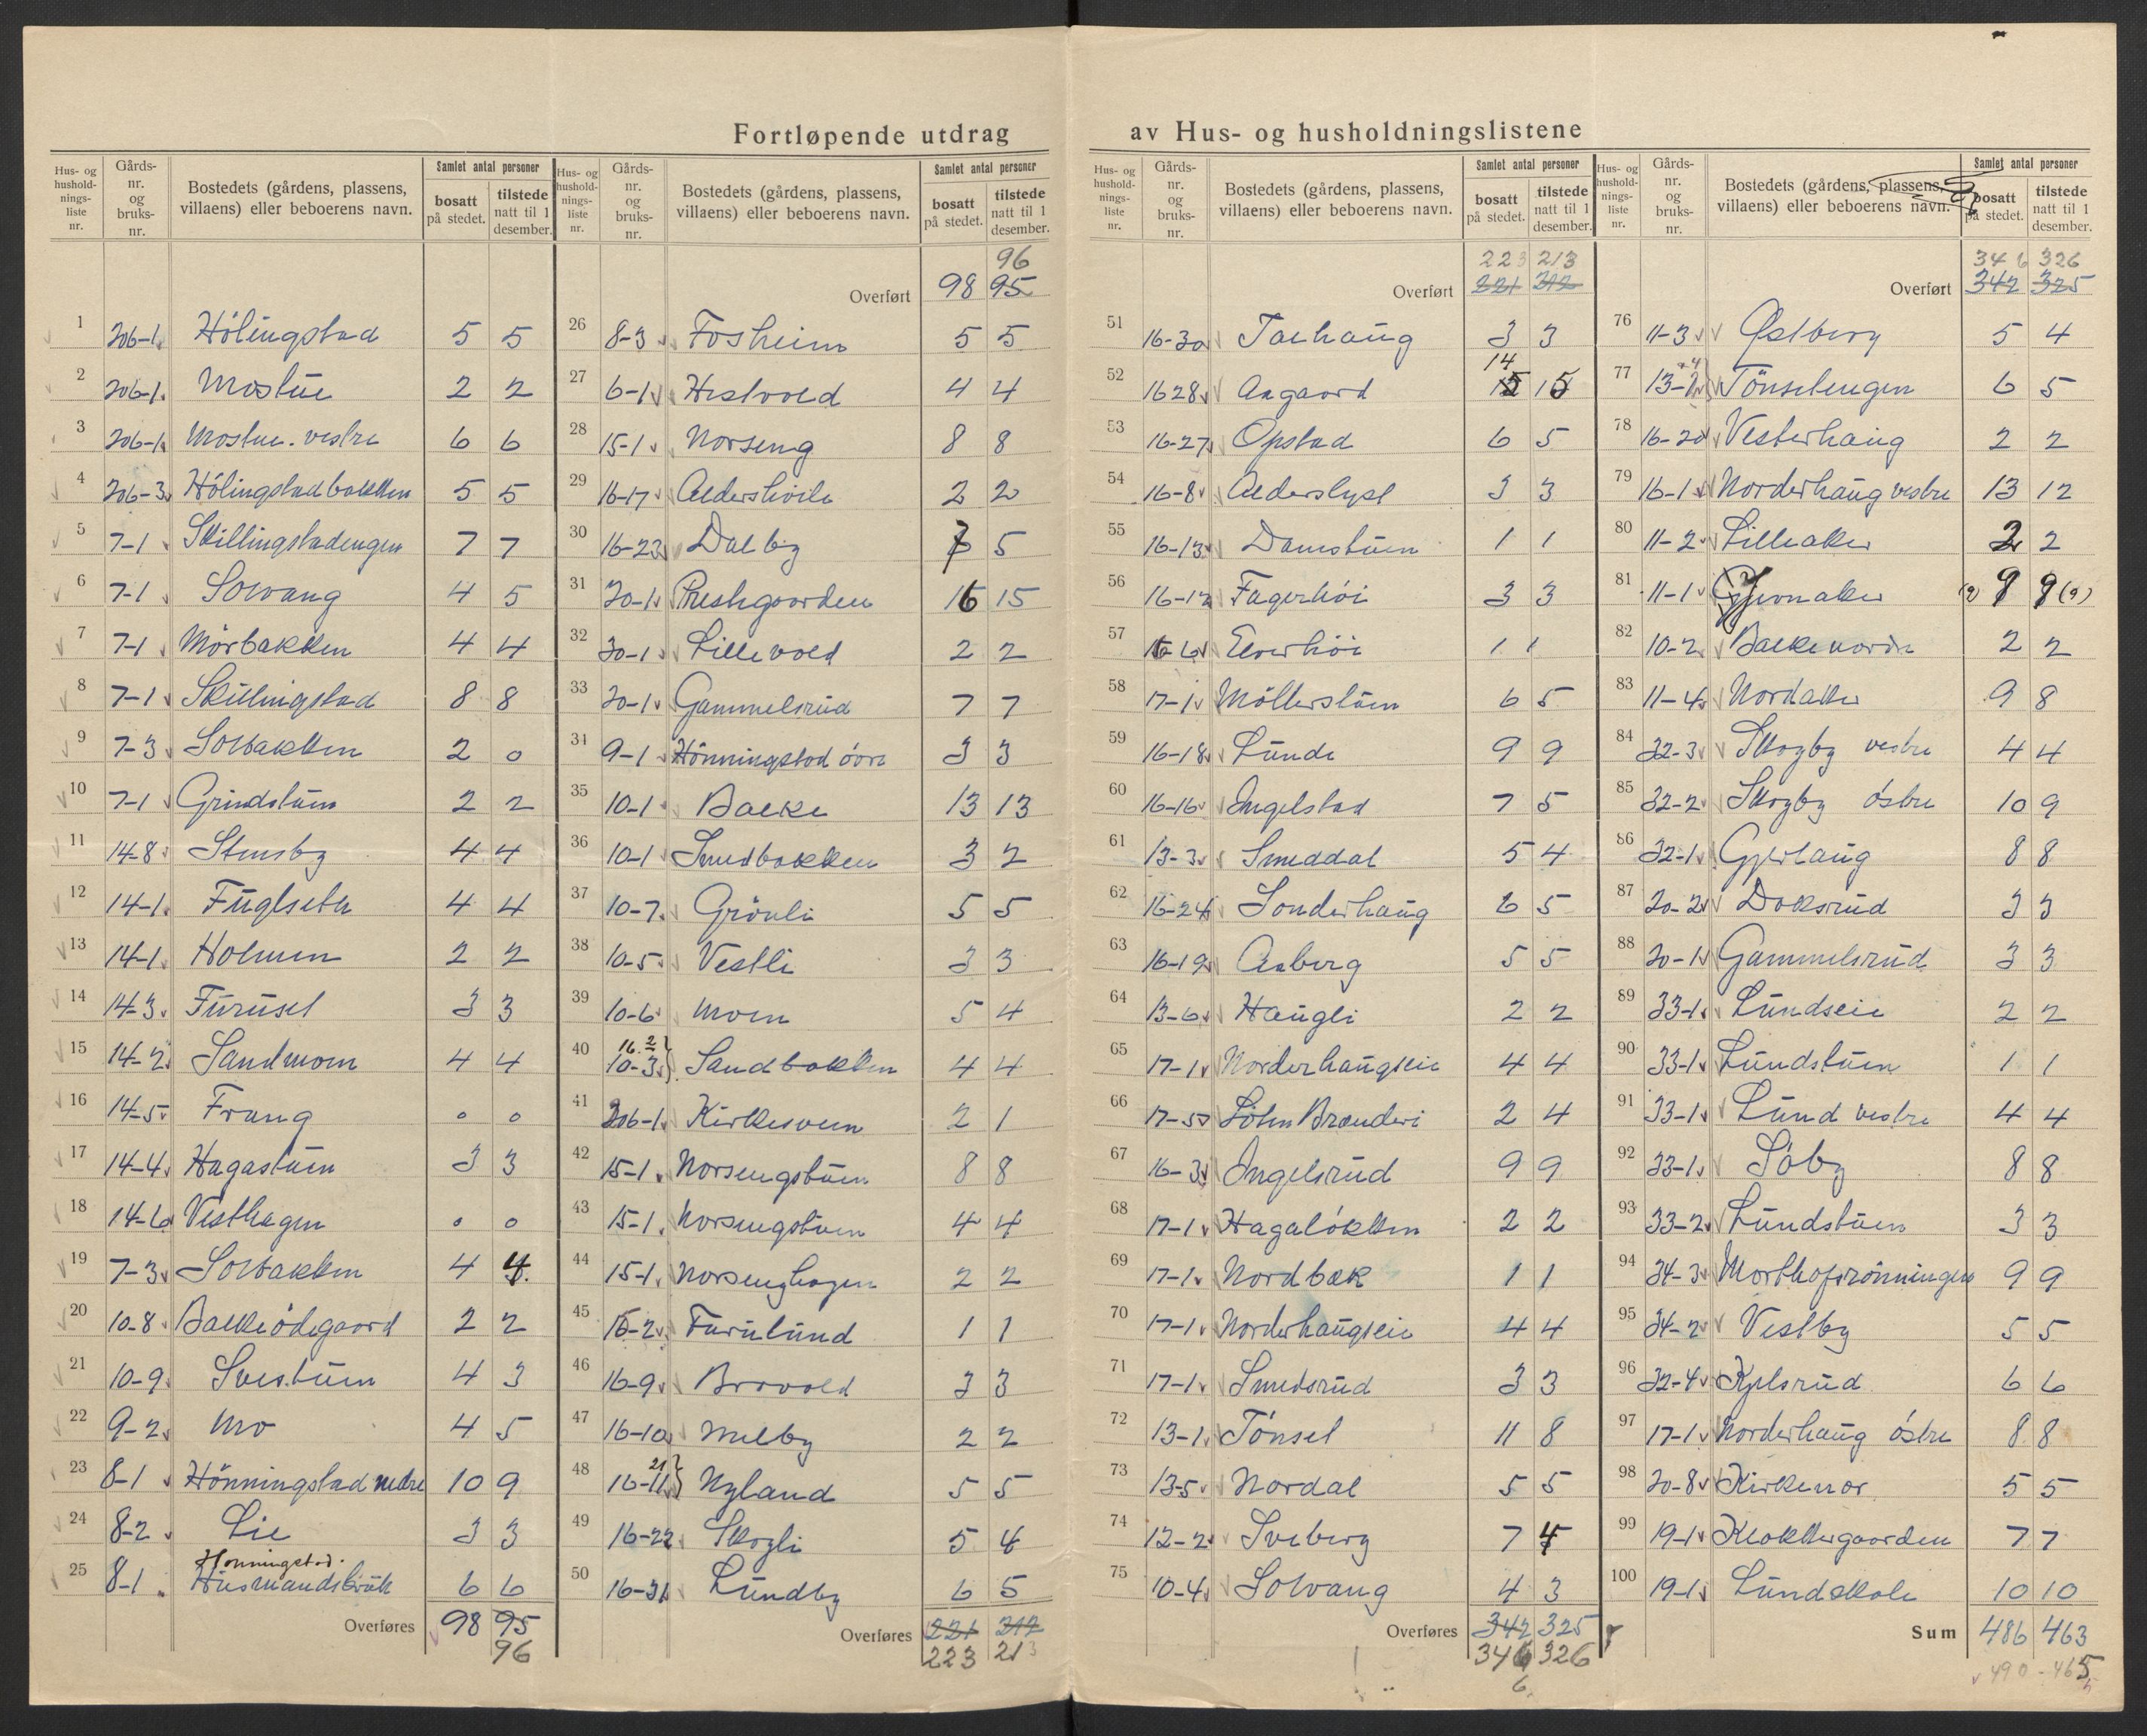 Fortløpende utdrag av Hus- og husholdningslistene
Hus- og hushold-nings-liste nr. Gårds-nr. og bruks-nr. Bostedets (gårdens, plassens, villaens) eller beboerens navn. Samlet antal personer bosatt på stedet. tilstede natt til 1 desember.
1 206-1 Hölingstad 5 5
2 206-1 Mostue 2 2
3 206-1 Mostue. vestre 6 6
4 206-3 Hölingstadbakken 5 5
5 7-1 Skillingstadengen 7 7
6 7-1 Solvang 4 5
7 7-1 Mörbakken 4 4
8 7-1 Skillingstad 8 8
9 7-3 Solbakken 2 0
10 7-1 Grindstuen 2 2
11 14-8 Stensby 4 4
12 14-1 Fuglseth 4 4
13 14-1 Holmen 2 2
14 14-3 Furusel 3 3
15 14-2 Sandmoen 4 4
16 14-5 Frang 0 0
17 14-4 Hagastuen 3 3
18 14-6 Vesthagen 0 0
19 7-3 Solbakken 4 4
20 10-8 Baekkeödegaard 2 2
21 10-9 Svestuen 4 3
22 9-2 Mo 4 5
23 8-1 Hönningstad nedre 10 9
24 8-2 Lie 3 3
25 8-1 Honningstad. Husmandsbruk 6 6
Overføres 98 95
96
Hus- og hushold-nings-liste nr. Gårds-nr. og bruks-nr. Bostedets (gårdens, plassens, villaens) eller beboerens navn. Samlet antal personer bosatt på stedet. tilstede natt til 1 desember.
96
Overført 98 95
26 8-3 Fosheim 5 5
27 6-1 Hestvold 4 4
28 15-1 Norseng 8 8
29 16-17 Aldershvile 2 2
30 16-23 Dalby 7 5
31 20-1 Prestegaarden 16 15
32 20-1 Lillevold 2 2
33 20-1 Gammelsrud 7 7
34 9-1 Hönningstad övre 3 3
35 10-1 Baeke 13 13
36 10-1 Smedbakken 3 2
37 10-7 Grönli 5 5
38 10-5 Vestli 3 3
39 10-6 Moen 5 4
40 16-2 10-3 Sandbakken 4 4
41 206-1 Kirkesveen 2 1
42 15-1 Norsengstuen 8 8
43 15-1 Norsengstuen 4 4
44 15-1 Norsenghagen 2 2
45 16-2 Furulund 1 1
46 16-9 Brovold 3 3
47 16-10 Melby 2 2
48 21 16-11 Nyland 5 5
49 16-22 Skogli 5 4
50 16-31 Lundby 6 5
Overføres 221 212
223 213
Hus- og hushold-nings-liste nr. Gårds-nr. og bruks-nr. Bostedets (gårdens, plassens, villaens) eller beboerens navn. Samlet antal personer bosatt på stedet. tilstede natt til 1 desember.
223 213
Overført 221 212
51 16-30 Taehaug 3 3
52 16 28 Aagaard 14 15 15
53 16-27 Opstad 6 5
54 16-8 Alderslyst 3 3
55 16-13 Damstuen 1 1
56 16-12 Fagerhöi 3 3
57 16-6 Elverhöi 1 1
58 17-1 Möllerstuen 6 5
59 16-18 Lunde 9 9
60 16-16 Ingelstad 7 5
61 13-3 Smeddal 5 4
62 16-24 Sonderhaug 6 5
63 16-19 Aaberg 5 5
64 13-6 Haugli 2 2
65 17-1 Norderhaugseie 4 4
66 17-5 Löten Brænderi 2 4
67 16-3 Ingelsrud 9 9
68 17-1 Hagalökken 2 2
69 17-1 Nordbæk 1 1
70 17-1 Norderhaugseie 4 4
71 17-1 Smedsrud 3 3
72 13-1 Tönsel 11 8
73 13-5 Nordal 5 5
74 12-2 Sveberg 7 4
75 10-4 Solvang 4 3
Overføres 342 325
346 326
6
Hus- og hushold-nings-liste nr. Gårds-nr. og bruks-nr. Bostedets (gårdens, plassens, villaens) eller beboerens navn. Samlet antal personer bosatt på stedet. tilstede natt til 1 desember.
346 326
Overført 342 325
76 11-3 Østberg 5 4
77 13-2 Tönselengen 6 5
78 16-20 Vesterhaug 2 2
79 16-1 Norderhaug vestre 13 12
80 11-2 Lilleaker 2 2
81 11-1 Gjevnaker (9) 9 9 (9)
82 10-2 Baeke nordre 2 2
83 11-4 Nordaker 9 8
84 32-3 Skogby vestre 4 4
85 32-2 Skogby östre 10 9
86 32-1 Gjerlaug 8 8
87 20-2 Doksrud 3 3
88 20-1 Gammelsrud 3 3
89 33-1 Lundseie 2 2
90 33-1 Lundstuen 1 1
91 33-1 Lund vestre 4 4
92 33-1 Söby 8 8
93 33-2 Lundstuen 3 3
94 34-3 Morthofsrönningen 9 9
95 34-2 Vestby 5 5
96 32-4 Kjelsrud 6 6
97 17-1 Norderhaug östre 8 8
98 20-8 Kirkenor 5 5
99 19-1 Klokkergaarden 7 7
100 19-1 Lund skole 10 10
Sum 486 463
490 - 465